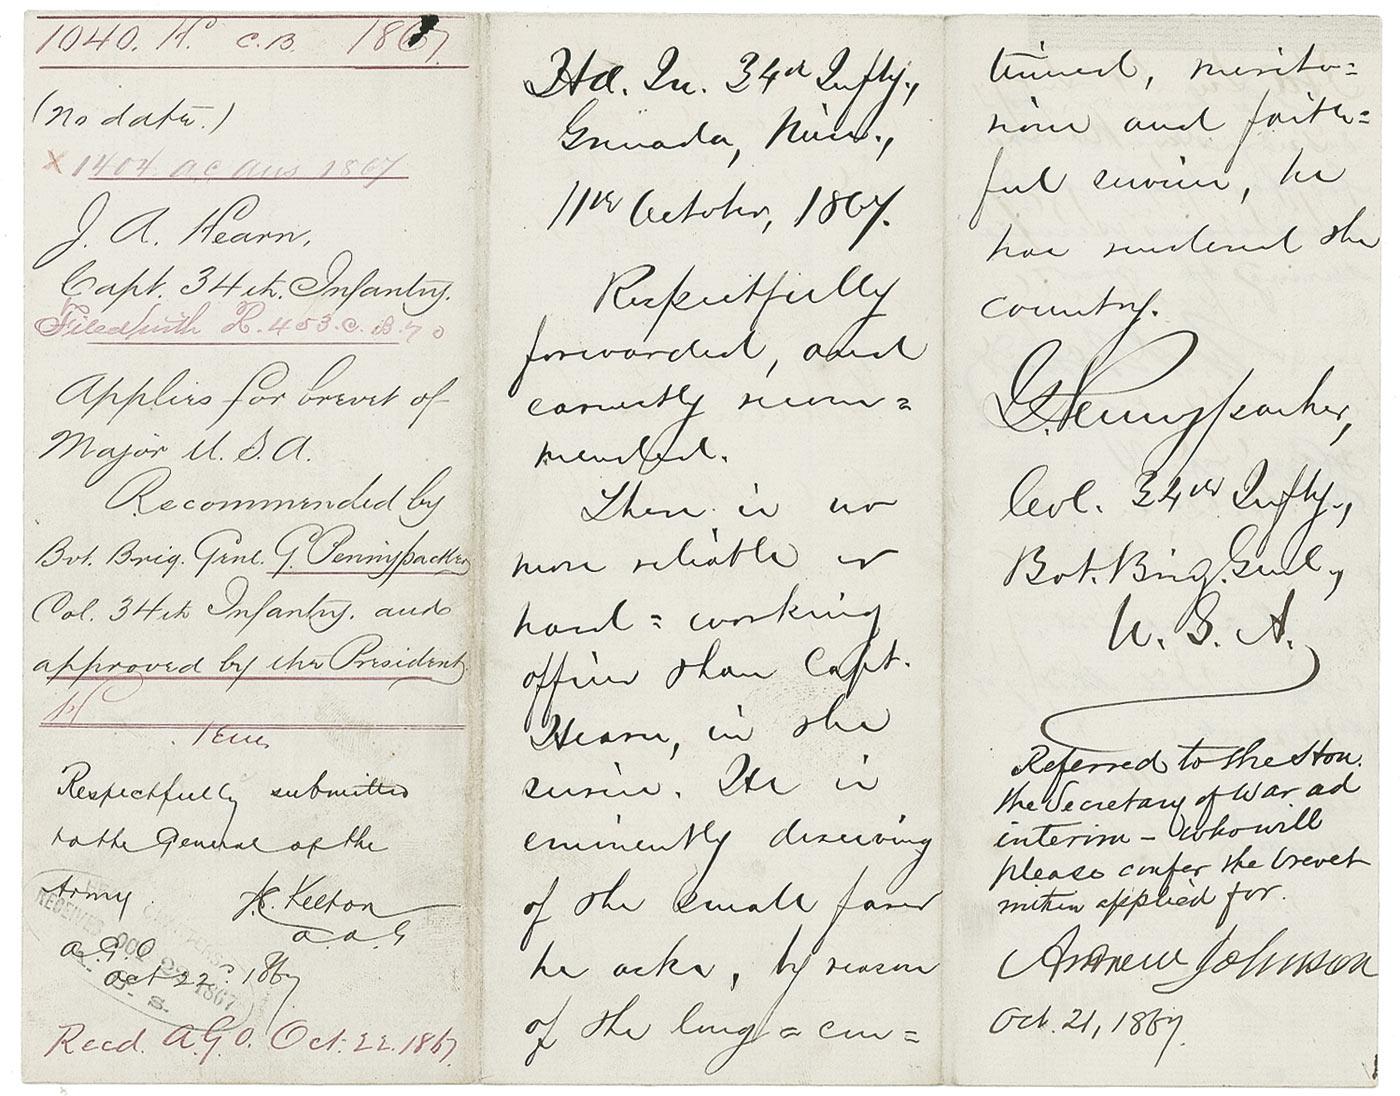 1040. H. C.B. 1867.
(No date.)
x 1404 ACP 1867
J. A. Hearn,
Capt. 34th. Infantry.
Filed with R. 453. C. B. 70
Applies for brevet of
Major U. S. A.
Recommended by
Bvt. Brig. Genl. G. Pennypacker
Col. 34th Infantry. and
approved by the President
Respectfully submitted
to the General of the
Army
J. C. Kelton
A. A. G
A.G.O
Oct 22. 1867
RECEIVED OCT 1867
Recd. A.G.O. Oct. 22. 1867.
Hd. Qu. 34th Infty.,
Grenada, Miss.,
11th October, 1867.
Respectfully
forwarded, and
earnestly recom=
mended.
There is no
more reliable or
hard=working
officer than Capt.
Hearn, in the
service. He is
eminently deserving
of the small favor
he asks, by reason
of the long=con=
tinued, merito=
rious and faith=
ful service, he
has rendered the
country.
G. Pennypacker,
Col. 34th Infty.,
Bvt. Brig. Genl.,
U. S. A.
Referred to the Hon.
the Secretary of War ad
interim - who will
please confer the brevet
within applied for.
Andrew Johnson
Oct. 21, 1867.